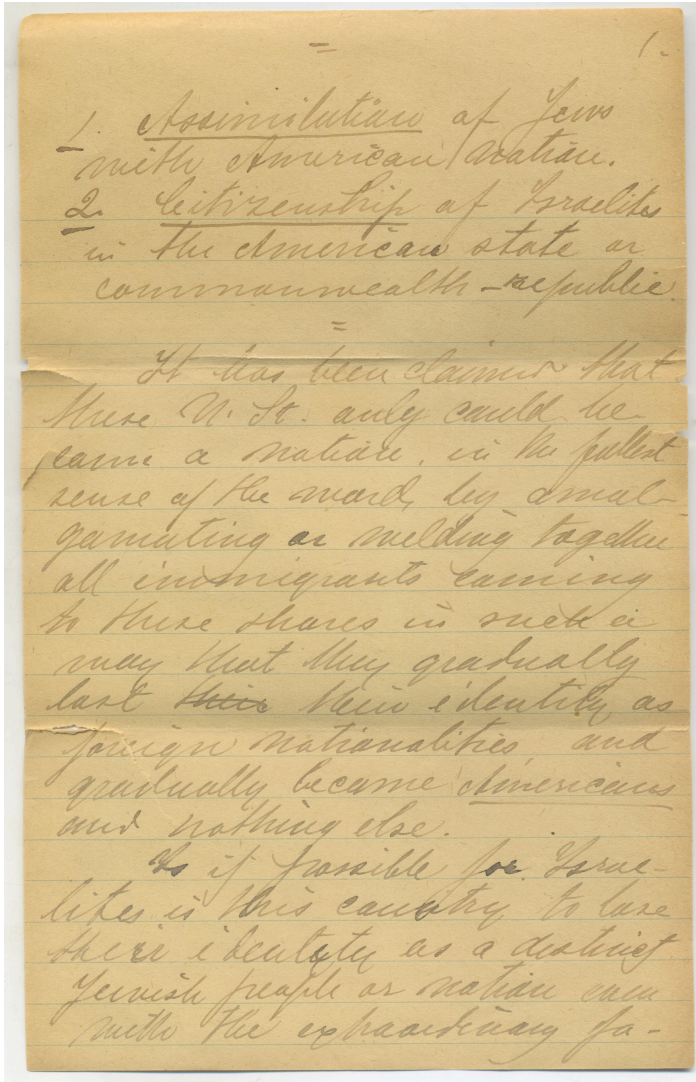 =
1.
1. Assimilation of Jews
with American nation.
2. Citizenship of Israelites
in the American state or
commonwealth - republic.
=
It has been claimed that
these U. St. only could be-
come a nation, in the fullest
sense of the word, by amal-
gamating or welding together
all immigrants coming
to these shores in such a
way that they gradually
lost their their identity as
foreign nationalities and
gradually became Americans
and nothing else.
Is it possible for Israe-
lites in this country to lose
their identity as a distinct
Jewish people or nation even
with the extraordinary fa-